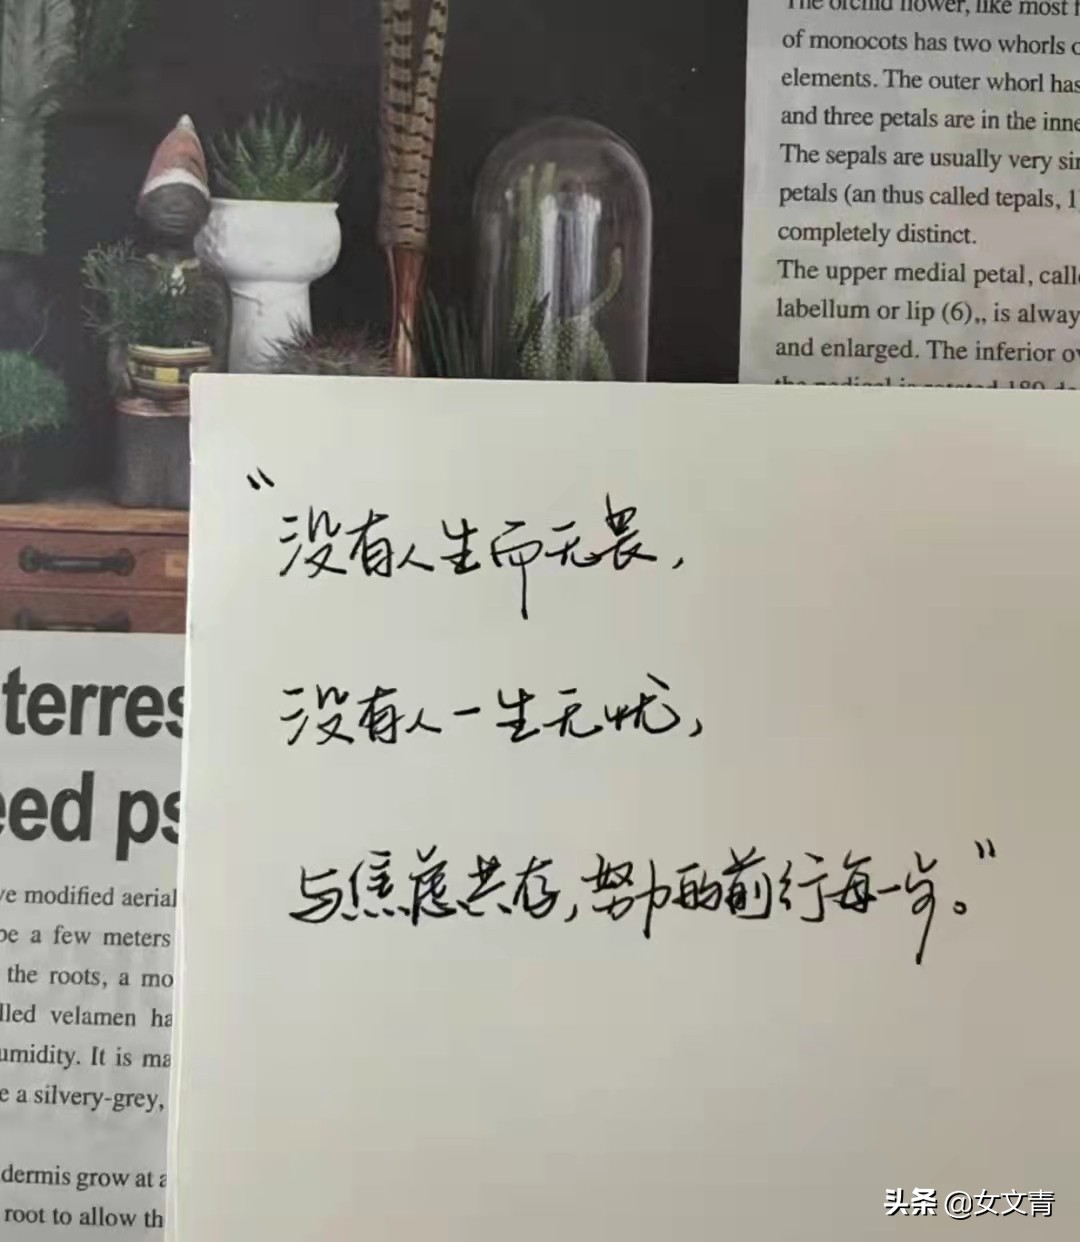 The orchid flower, like most f
of monocots has two whorls o
elements. The outer whorl has
and three petals are in the inne
The sepals are usually very sin
petals (an thus called tepals, 1
completely distinct.
The upper medial petal, calle
labellum or lip (6),, is alway
and enlarged. The inferior ov
"没有人生而无畏,
没有人一生无忧,
与焦虑共存,努力的前行每一步。"
terres
eed ps
ve modified aerial
be a few meters
the roots, a mo
lled velamen ha
umidity. It is ma
e a silvery-grey,
dermis grow at a
root to allow th
头条 @女文青